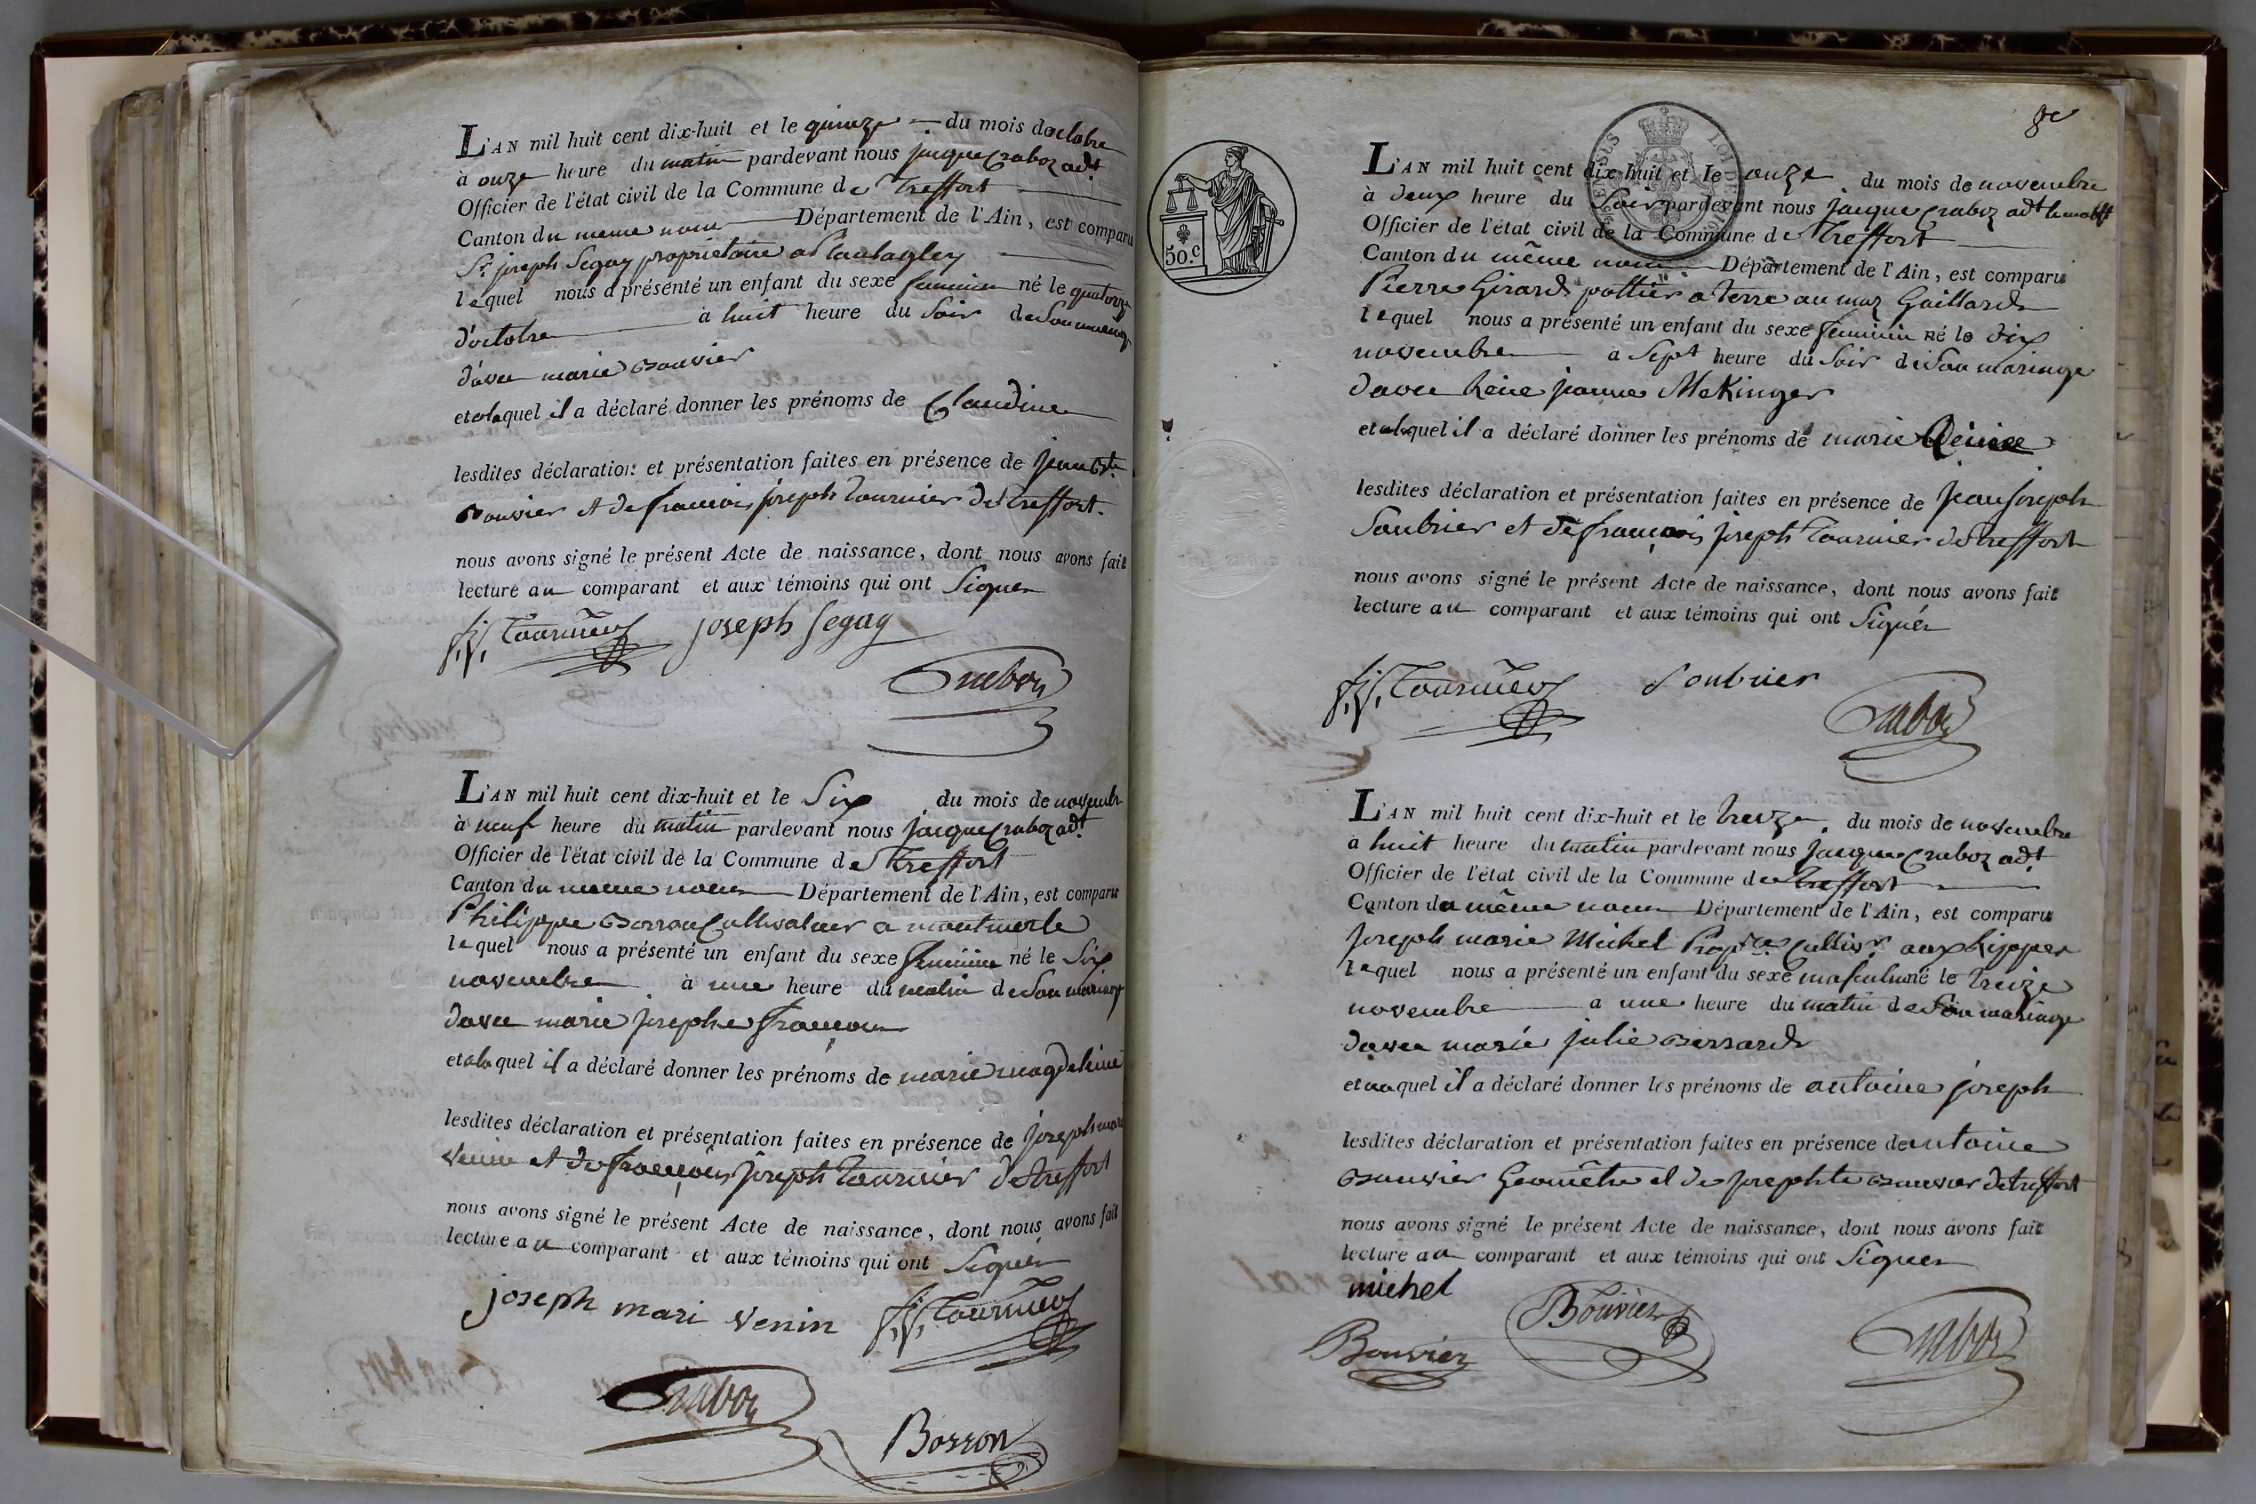 L'AN mil huit cent dix-huit et le quinze du mois doctobre
à onze heure du matin pardevant nous jacque Craboz adt
Officier de l'état civil de la Commune de Treffort
Canton du meme nom Département de l'Ain, est comparu
Sr joseph Segay proprietaire a
lequel nous a présenté un enfant du sexe feminin né le quatorze
d'octobre à huit heure du Soir de Son mariage
d'avec marie Bouvier
et alaquel il a déclaré donner les prénoms de Claudine
lesdites déclaration et présentation faites en présence de jean Bte
Bouvier et de francois joseph Tournier de Treffort.
nous avons signé le présent Acte de naissance, dont nous avons fait
lecture au comparant et aux témoins qui ont Signer
f. j. Tournier joseph Segay
Craboz
L'AN mil huit cent dix-huit et le Six du mois de novembre
à neuf heure du matin pardevant nous jacque Craboz adt
Officier de l'état civil de la Commune de Treffort
Canton du meme nom Département de l'Ain, est comparu
Philippe Borron Cultivateur a montmerle
lequel nous a présenté un enfant du sexe feminin né le Six
novembre à une heure du matin de Son mariage
davec marie josephe francon
et alaquel il a déclaré donner les prénoms de marie magdeleine
lesdites déclaration et présentation faites en présence de joseph marie
venin et de francois joseph Tournier de Treffort
nous avons signé le présent Acte de naissance, dont nous avons fait
lecture au comparant et aux témoins qui ont Signer
joseph mari venin f. j. Tournier
Craboz
Borron
50 c
L'AN mil huit cent dix-huit et le onze du mois de novembre
à deux heure du Soir pardevant nous jacque Craboz adt
Officier de l'état civil de la Commune de Treffort
Canton du même nom Département de l'Ain, est comparu
Pierre Girard pottier a terre au maz Gaillard
lequel nous a présenté un enfant du sexe feminin né le dix
novembre a Sept heure du Soir de Son mariage
davec Reine jeanne MeKinger
et alaquel il a déclaré donner les prénoms de marie Reine
lesdites déclaration et présentation faites en présence de jean joseph
Soubrier et de francois joseph Tournier de Treffort
nous avons signé le présent Acte de naissance, dont nous avons fait
lecture au comparant et aux témoins qui ont Signer
f. j. Tournier Soubrier
Craboz
L'AN mil huit cent dix-huit et le treize du mois de novembre
à huit heure du matin pardevant nous jacque Craboz adt
Officier de l'état civil de la Commune de Treffort
Canton du même nom Département de l'Ain, est comparu
joseph marie Michel Propre Cultivr aux
lequel nous a présenté un enfant du sexe masculin né le treize
novembre a une heure du matin de Son mariage
davec marie julie Bessard
et auquel il a déclaré donner les prénoms de antoine joseph
lesdites déclaration et présentation faites en présence de antoine
Bouvier Geomêtre et de josephte Bouvier de treffort
nous avons signé le présent Acte de naissance, dont nous avons fait
lecture au comparant et aux témoins qui ont Signer
michel
Bouvier Bouvier Craboz